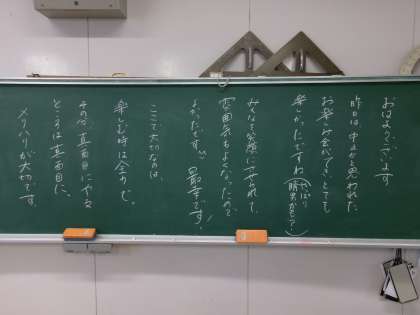 おはようございます
昨日は、中止かと思われた
お楽しみ会ができ、とても
楽しかったですね(やっぱり晴男かも?)
みんな笑顔にさせられたし
雰囲気もよくなったので
よかったですヽヽ 最幸です!
ここで大切なのは、
楽しむ時は全力で。
その分、真面目にやる
ところは真面目に。
メリハリが大切です